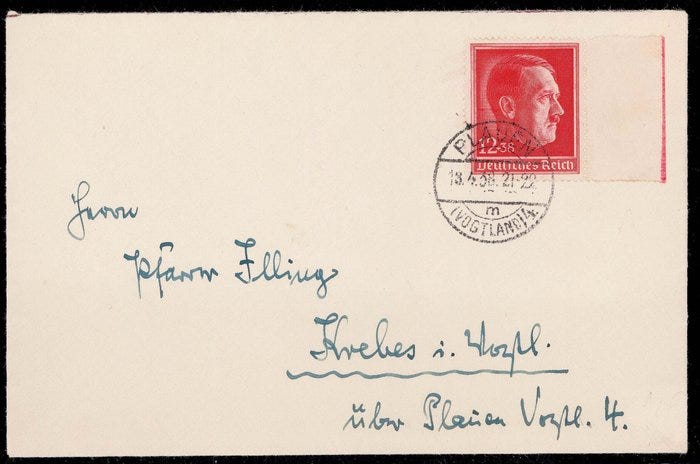 12+38
Deutsches Reich
PLAUEN
13.4.38.21-22
m
(VOGTLAND)4
Herrn
Pfarrer Illing
Krebes i. Vogtl.
über Plauen Vogtl. 4.